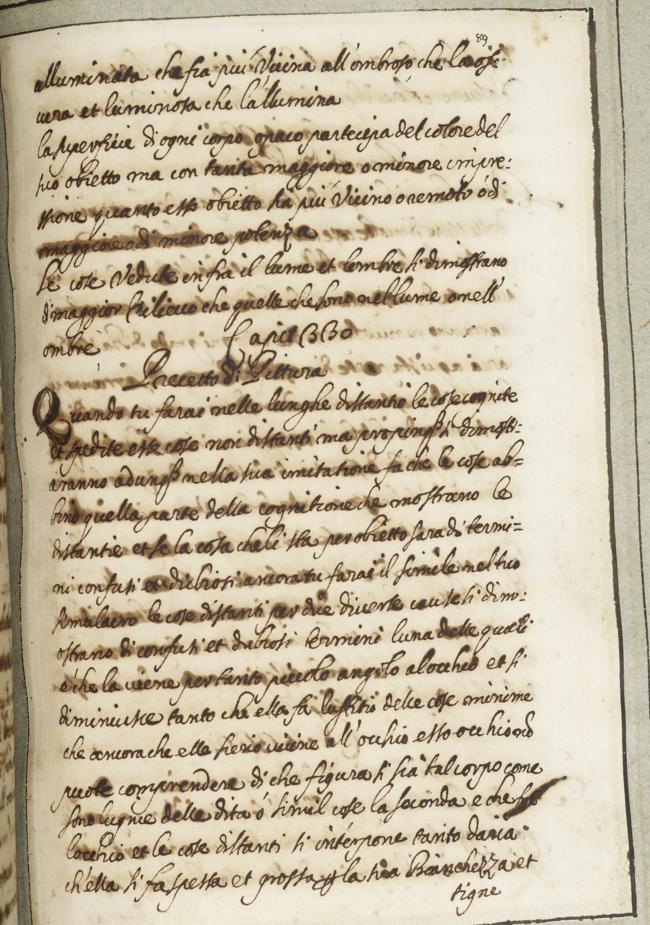 89
alluminata che fia più Vicina all'ombroso che la osc:
cura et luminosa che l'allumina
la superficie di ogni corpo opaco partecipa del colore del
suo obietto ma con tanta maggiore o minore impre:
ssione quanto esso obietto ha più Vicino o remoto ò di
maggiore o di minore potenza
Le cose Vedute infra il lume et lombre si dimostrano
di maggior Rilievo che quelle che sono nel lume o nell'
ombre Capit(330
Precetto di Pittura
Quando tu farai nelle lunghe distantie le cose cognite
et spedite esse cose non distanti ma propinq si dimost:
aranno adunq nella tua imitatione fa che le cose ab=
bino quella parte della cognitione che mostrano le
distantie et se la cosa che li sta per obietto sara di termi=
ni confusi et dubiosi ancora tu farai il simile nel tuo
semulacro le cose distanti per due diverse cause si dim:
ostrano di confusi et dubiosi termini luna delle quali
è che la viene per tanto piccolo angolo al ochio et si
diminuisce tanto che ella fa luffitio delle cose minime
che ancora che elle sieno vicine all'occhio esso occhio nō
puote comprendere di che figura si sia tal corpo come
sono lugnie delle dita ò simil cose la seconda e che fra
locchio et le cose distanti si interpone tanto daria
ch'ella si fa spessa et grossa la sua Bianchezza et
tigne